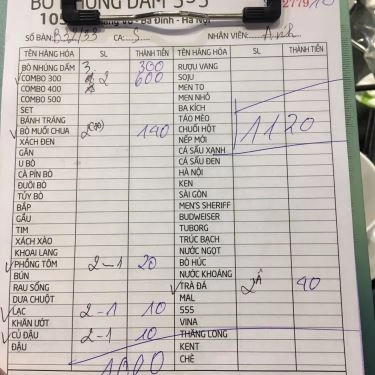 BÒ NHÚNG DẤM 555
105
Ba Đình - Hà Nội
SỐ BÀN: B32/33 CA: S NHÂN VIÊN: Anh
TÊN HÀNG HÓA SL THÀNH TIỀN TÊN HÀNG HÓA SL THÀNH TIỀN
BÒ NHÚNG DẤM 3 300 RƯỢU VANG
COMBO 300 2 600 SOJU
COMBO 400 MEN TO
COMBO 500 MEN NHỎ
SET BA KÍCH
BÁNH TRÁNG TÁO MÈO 1120
BÒ MUỐI CHUA 140 CHUỐI HỘT
XÁCH ĐEN NẾP MỚI
GÂN CÁ SẤU XANH
U BÒ CÁ SẤU ĐEN
CÀ PÍN BÒ HÀ NỘI
ĐUÔI BÒ KEN
TỦY BÒ SÀI GÒN
BẮP MEN'S SHERIFF
GẦU BUDWEISER
TIM TUBORG
XÁCH XÀO TRÚC BẠCH
KHOAI LANG NƯỚC NGỌT
PHỒNG TÔM 2-1 20 BÒ HÚC
BÚN NƯỚC KHOÁNG
RAU SỐNG TRÀ ĐÁ 2 40
DƯA CHUỘT MAL
LẠC 2-1 10 555
KHĂN ƯỚT VINA
CỦ ĐẬU 2-1 10 THĂNG LONG
ĐẬU KENT
1000 CHÈ